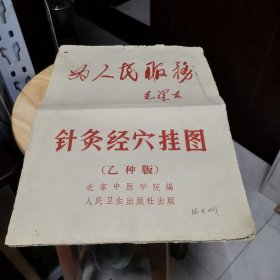 为人民服务
毛泽东
针灸经穴挂图
（乙种版）
北京中医学院编
人民卫生出版社出版